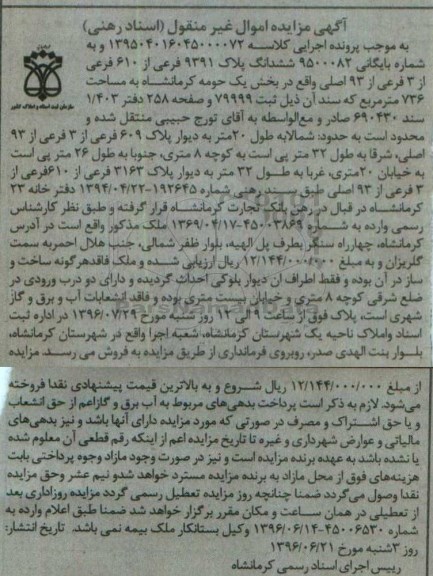 آگهی مزایده اموال غیر منقول (اسناد رهنی)
به موجب پرونده اجرایی کلاسه ۱۳۹۵۰۴۰۱۶۰۴۵۰۰۰۰۷۲ و به
شماره بایگانی ۹۵۰۰۰۸۲ ششدانگ پلاک ۹۳۹۱ فرعی از ۶۱۰ فرعی
از ۳ فرعی از ۹۳ اصلی واقع در بخش یک حومه کرمانشاه به مساحت
۷۳۶ مترمربع که سند آن ذیل ثبت ۷۹۹۹۹ و صفحه ۲۵۸ دفتر ۱/۴۰۳
سند ۶۹۰۴۳۰ صادر و مع‌الواسطه به آقای تورج حبیبی منتقل شده و
محدود است به حدود: شمالا به طول ۲۰متر به دیوار پلاک ۶۰۹ فرعی از ۳ فرعی از ۹۳
اصلی، شرقا به طول ۳۲ متر پی است به کوچه ۸ متری، جنوبا به طول ۲۶ متر پی است
به خیابان ۲۰متری، غربا به طول ۳۲ متر به دیوار پلاک ۳۱۶۳ فرعی از ۶۱۰فرعی از
۳ فرعی از ۹۳ اصلی طبق سند رهنی شماره ۱۹۲۶۴۵-۱۳۹۴/۰۴/۲۲ دفتر خانه ۲۳
کرمانشاه در قبال در رهن بانک تجارت کرمانشاه قرار گرفته و طبق نظر کارشناس
رسمی وارده به شماره ۴۵۰۰۳۸۶۹-۱۳۶۹/۰۴/۱۷ ملک مذکور واقع است در آدرس
کرمانشاه، چهارراه سنگر بطرف پل الهیه، بلوار ظفر شمالی، جنب هلال احمر به سمت
گلریزان و به مبلغ ۱۲/۱۴۴/۰۰۰/۰۰۰ ریال ارزیابی شده و ملک فاقد هرگونه ساخت و
ساز در آن بوده و فقط اطراف آن دیوار بلوکی احداث گردیده و دارای دو درب ورودی در
ضلع شرقی کوچه ۸ متری و خیابان بیست متری بوده و فاقد انشعابات آب و برق و گاز
شهری است، پلاک فوق از ساعت ۹ الی ۱۲ روز شنبه مورخ ۱۳۹۶/۰۷/۲۹ در اداره ثبت
اسناد واملاک ناحیه یک شهرستان کرمانشاه، شعبه اجرا واقع در شهرستان کرمانشاه،
بلوار بنت الهدی صدر، روبروی فرمانداری از طریق مزایده به فروش می رسد. مزایده
از مبلغ ۱۲/۱۴۴/۰۰۰/۰۰۰ ریال شروع و به بالاترین قیمت پیشنهادی نقدا فروخته
می‌شود. لازم به ذکر است پرداخت بدهی‌های مربوط به آب برق و گاز اعم از حق انشعاب
و یا حق اشتراک و مصرف در صورتی که مورد مزایده دارای آنها باشد و نیز بدهی‌های
مالیاتی و عوارض شهرداری و غیره تا تاریخ مزایده اعم از اینکه رقم قطعی آن معلوم شده
یا نشده باشد به عهده برنده مزایده است و نیز در صورت وجود مازاد وجوه پرداختی بابت
هزینه‌های فوق از محل مازاد به برنده مزایده مسترد خواهد شد و نیم عشر و حق مزایده
نقدا وصول می‌گردد ضمنا چنانچه روز مزایده تعطیل رسمی گردد مزایده روز اداری بعد
از تعطیلی در همان ساعت و مکان مقرر برگزار خواهد شد ضمنا طبق اعلام وارده به
شماره ۴۵۰۰۶۵۳۰-۱۳۹۶/۰۶/۱۴ وکیل بستانکار ملک بیمه نمی باشد. تاریخ انتشار:
روز ۳شنبه مورخ ۱۳۹۶/۰۶/۲۱
رییس اجرای اسناد رسمی کرمانشاه
سازمان ثبت اسناد و املاک کشور